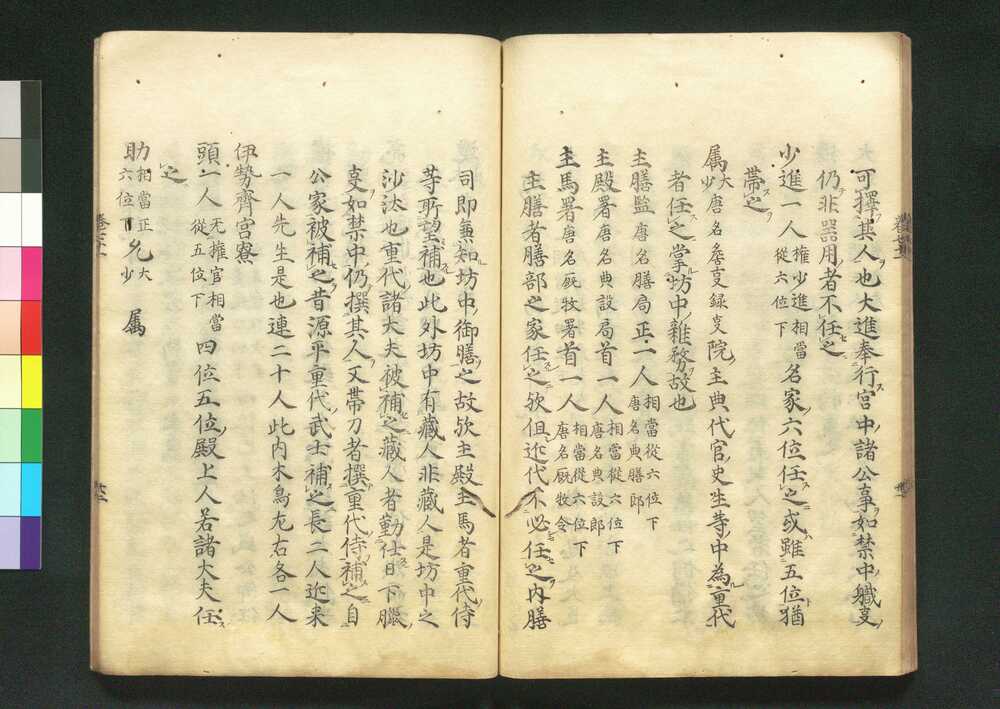 可擇其人也大進奉行宮中諸公事如禁中職㕝
少進一人 權少進相當 從六位下 名家六位任之或雖五位猶
帶之
属 大 少 唐名詹㕝録㕝 院主典代官史生等中為重代
者任之掌坊中雜務故也
主膳監 唐名膳局 正一人 相當從六位下 唐名典膳郎
主殿署 唐名典設局 首一人 相當從六位下 唐名典設郎
主馬署 唐名厩牧署 首一人 相當從六位下 唐名厩牧令
主膳者膳部之家任之欤但近代不必任之内膳
司即兼知坊中御膳之故欤主殿主馬者重代侍
等所望補也此外坊中有藏人非藏人是坊中之
沙汰也重代諸大夫被補之藏人者勤仕日下臈
㕝如禁中仍撰其人又帶刀者撰重代侍補之自
公家被補之昔源平重代武士補之長二人近来
一人先生是也連二十人此内木鳥左右各一人
伊勢齊宮寮
頭一人 无權官相當 從五位下 四位五位殿上人若諸大夫任
之
助 相當正 六位下 允 大 少 属